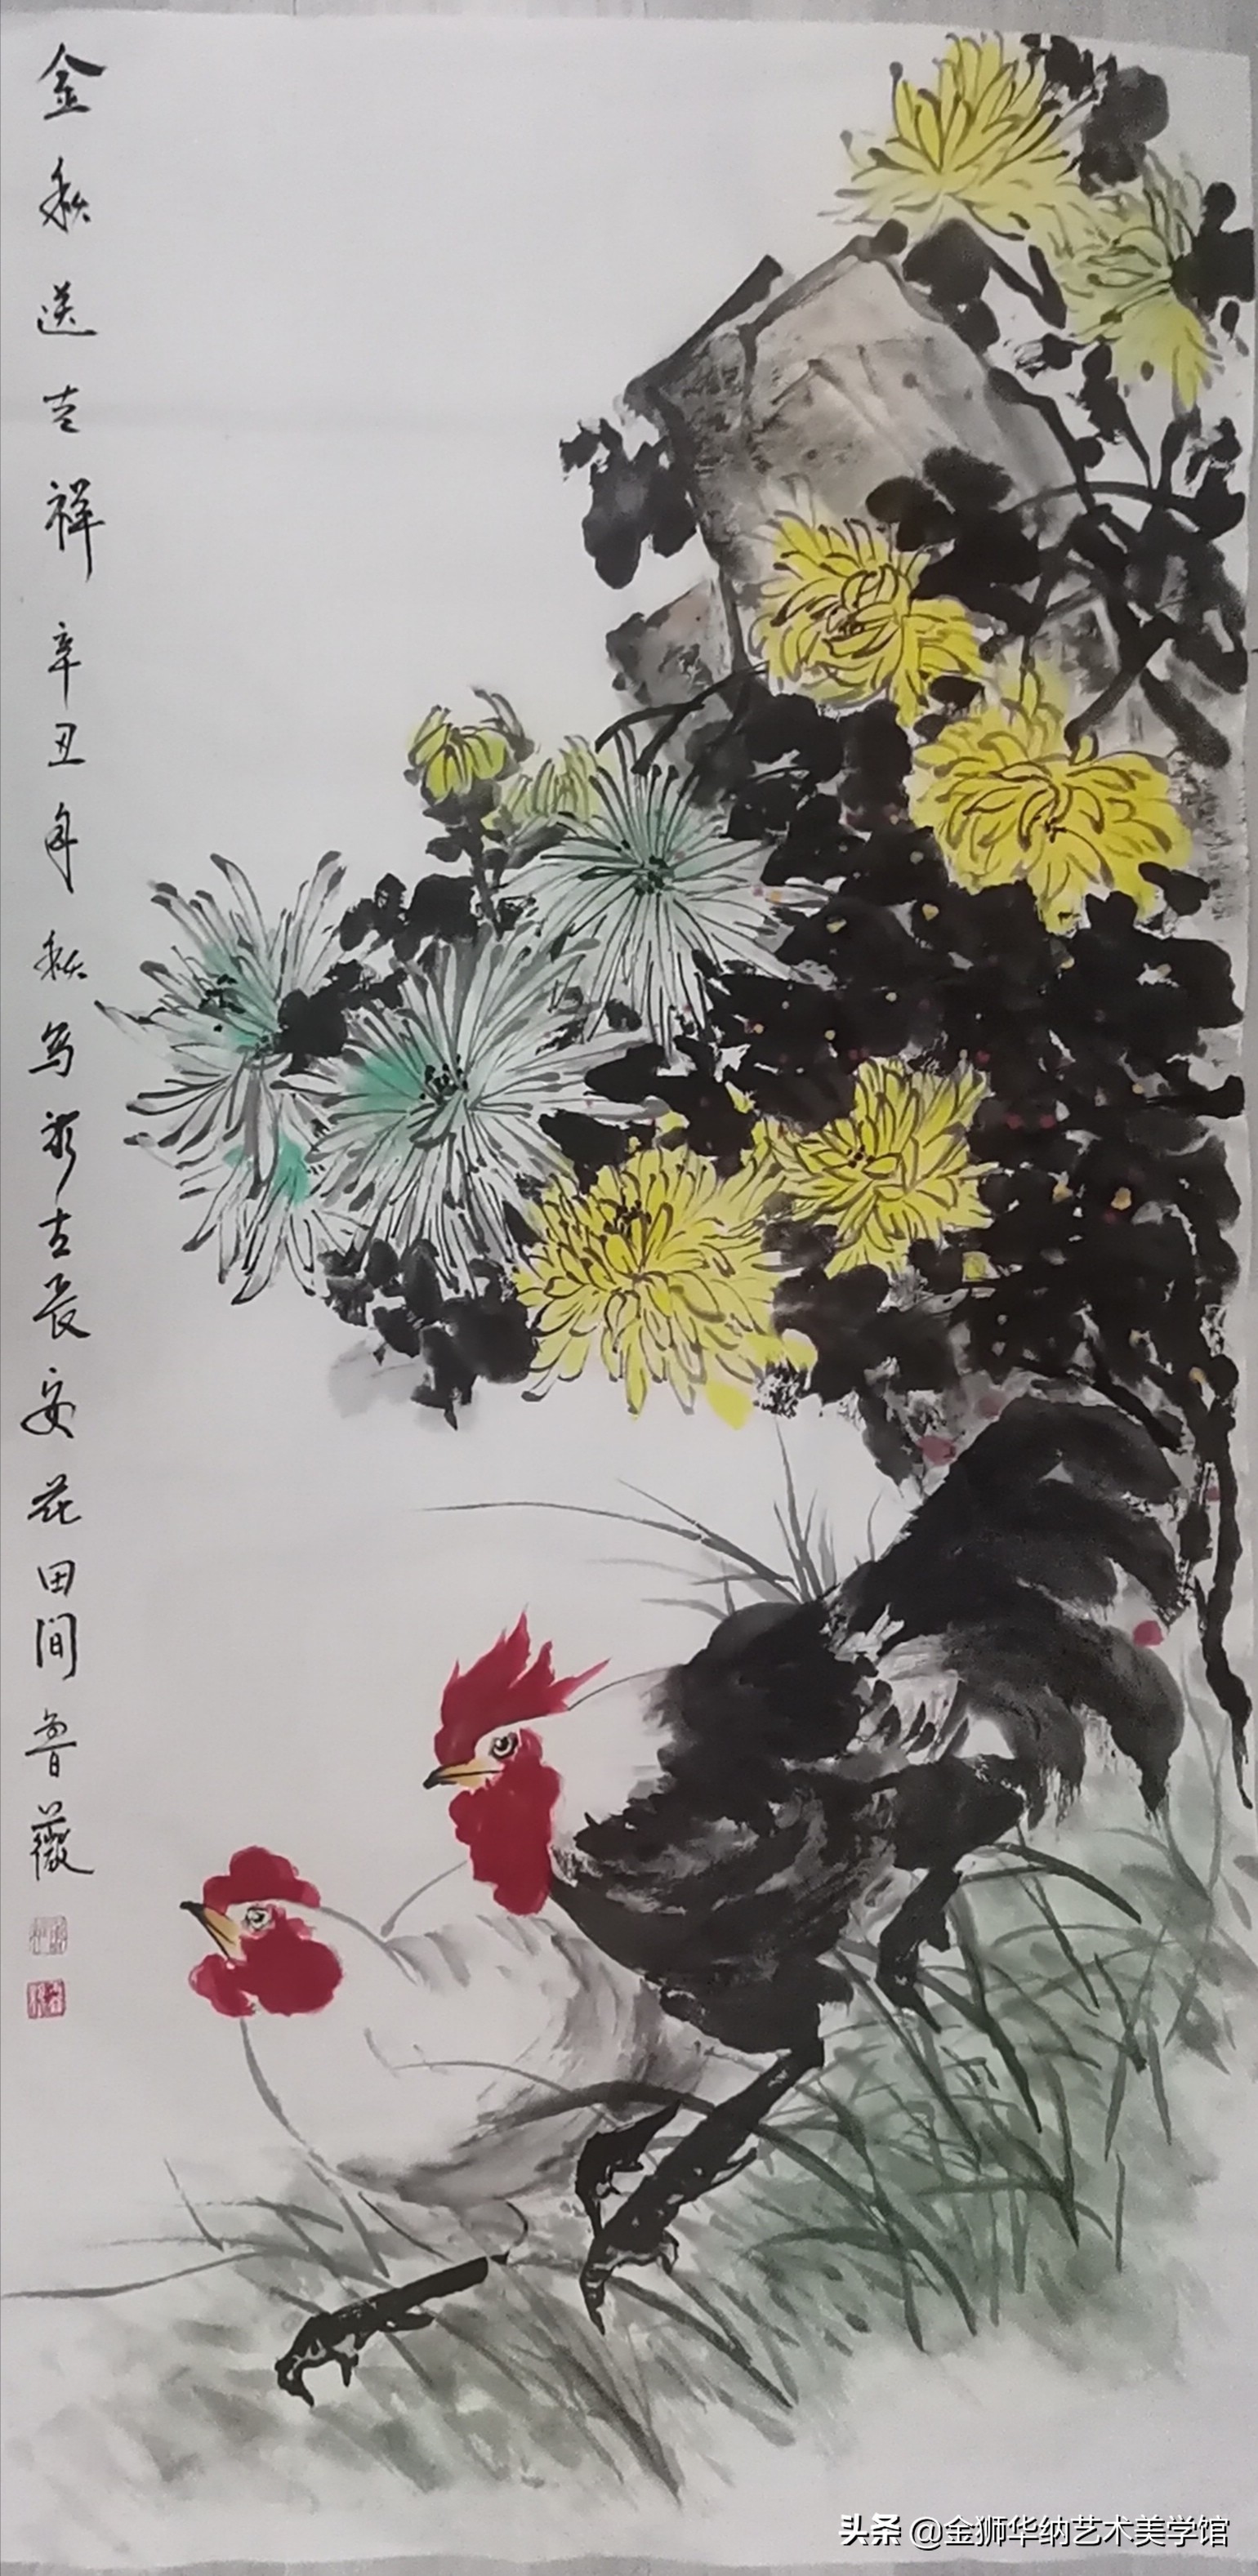 金秋送吉祥辛丑年秋写于古长安花田间鲁薇
头条 @金狮华纳艺术美学馆